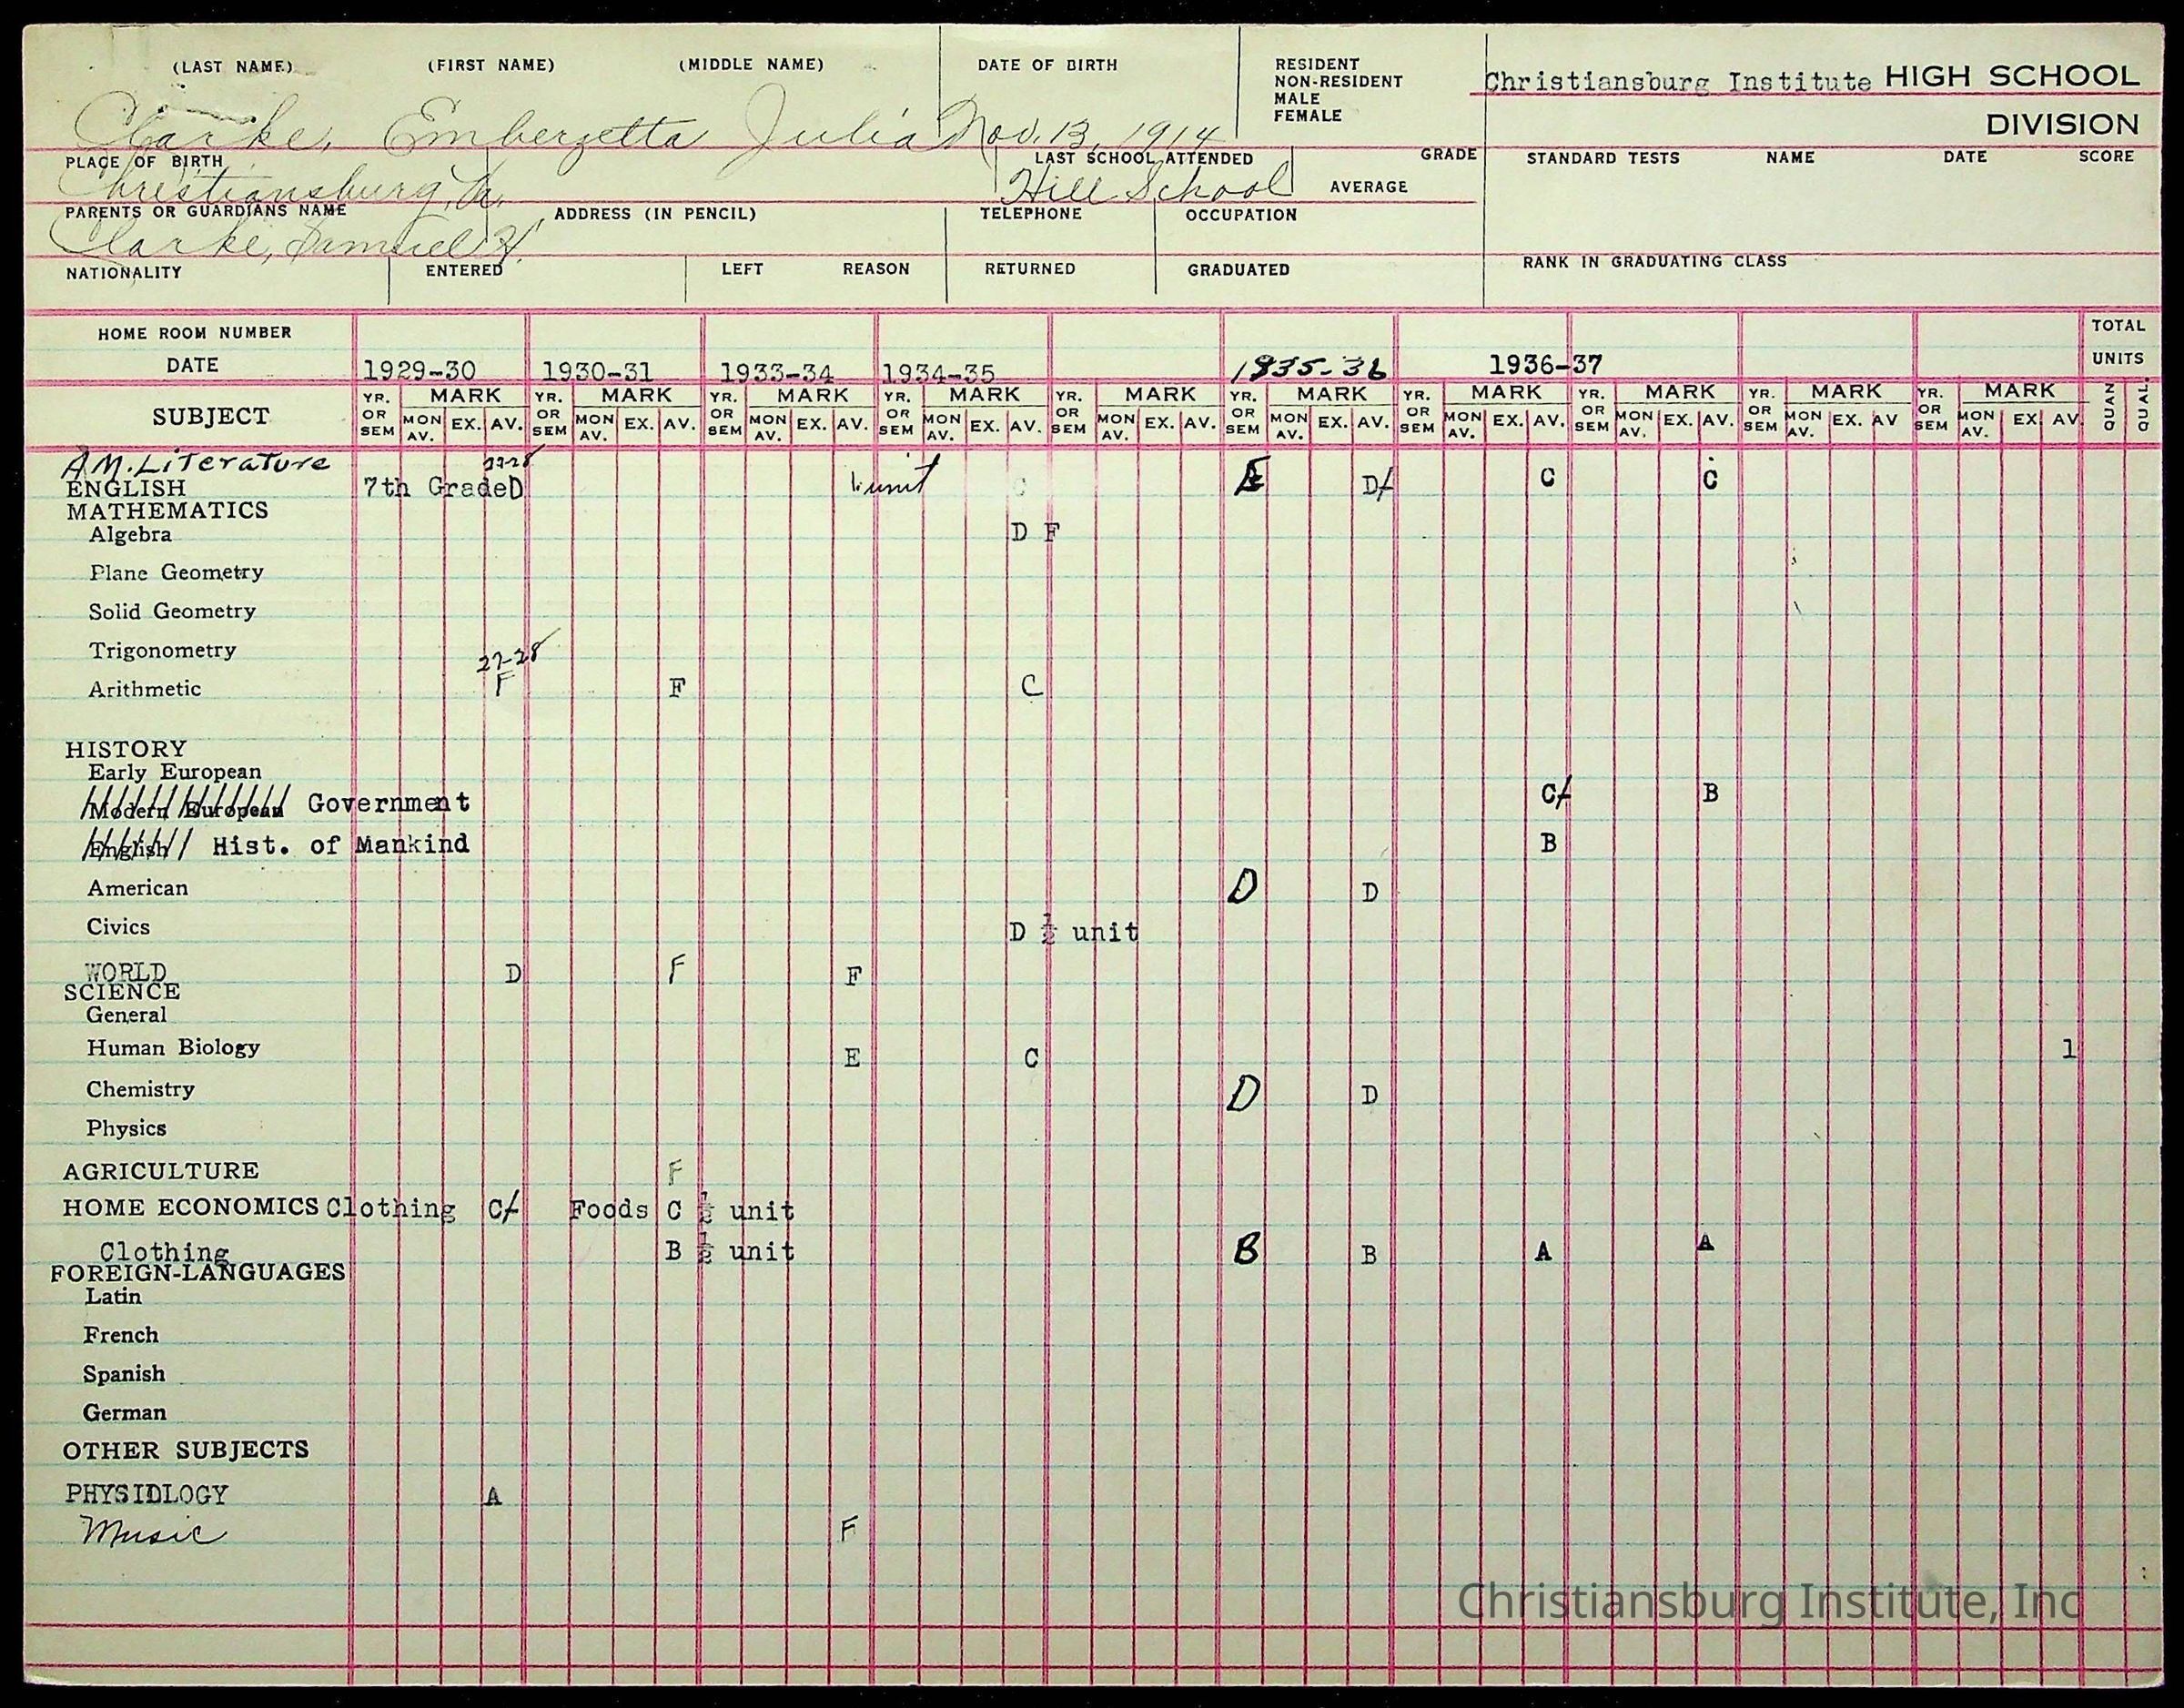 (LAST NAME) (FIRST NAME) (MIDDLE NAME) DATE OF BIRTH RESIDENT
NON-RESIDENT
MALE
FEMALE
Christiansburg Institute HIGH SCHOOL
DIVISION
Clarke, Emberzetta Julia Nov. 13, 1914
PLACE OF BIRTH LAST SCHOOL ATTENDED GRADE STANDARD TESTS NAME DATE SCORE
Christiansburg, Va. Hill School AVERAGE
PARENTS OR GUARDIANS NAME ADDRESS (IN PENCIL) TELEPHONE OCCUPATION
Clarke, Samuel H.
NATIONALITY ENTERED LEFT REASON RETURNED GRADUATED RANK IN GRADUATING CLASS
HOME ROOM NUMBER TOTAL
DATE 1929-30 1930-31 1933-34 1934-35 1935-36 1936-37 UNITS
SUBJECT YR. OR SEM MARK MON AV. EX. AV. YR. OR SEM MARK MON AV. EX. AV. YR. OR SEM MARK MON AV. EX. AV. YR. OR SEM MARK MON AV. EX. AV. YR. OR SEM MARK MON AV. EX. AV. YR. OR SEM MARK MON AV. EX. AV. YR. OR SEM MARK MON AV. EX. AV. YR. OR SEM MARK MON AV. EX. AV. YR. OR SEM MARK MON AV. EX. AV YR. OR SEM MARK MON AV. EX AV QUAN QUAL.
AM. Literature 27-28
ENGLISH 7th Grade D 1 unit C D/ C C
MATHEMATICS
Algebra D F
Plane Geometry
Solid Geometry
Trigonometry
27-28
Arithmetic F F C
HISTORY
Early European
Modern European Government C/ B
English Hist. of Mankind B
American D D
Civics D ½ unit
WORLD D F F
SCIENCE
General
Human Biology E C 1
Chemistry D D
Physics
AGRICULTURE F
HOME ECONOMICS Clothing C/ Foods C ½ unit
Clothing B ½ unit B B A A
FOREIGN-LANGUAGES
Latin
French
Spanish
German
OTHER SUBJECTS
PHYSIOLOGY A
Music F
Christiansburg Institute, Inc